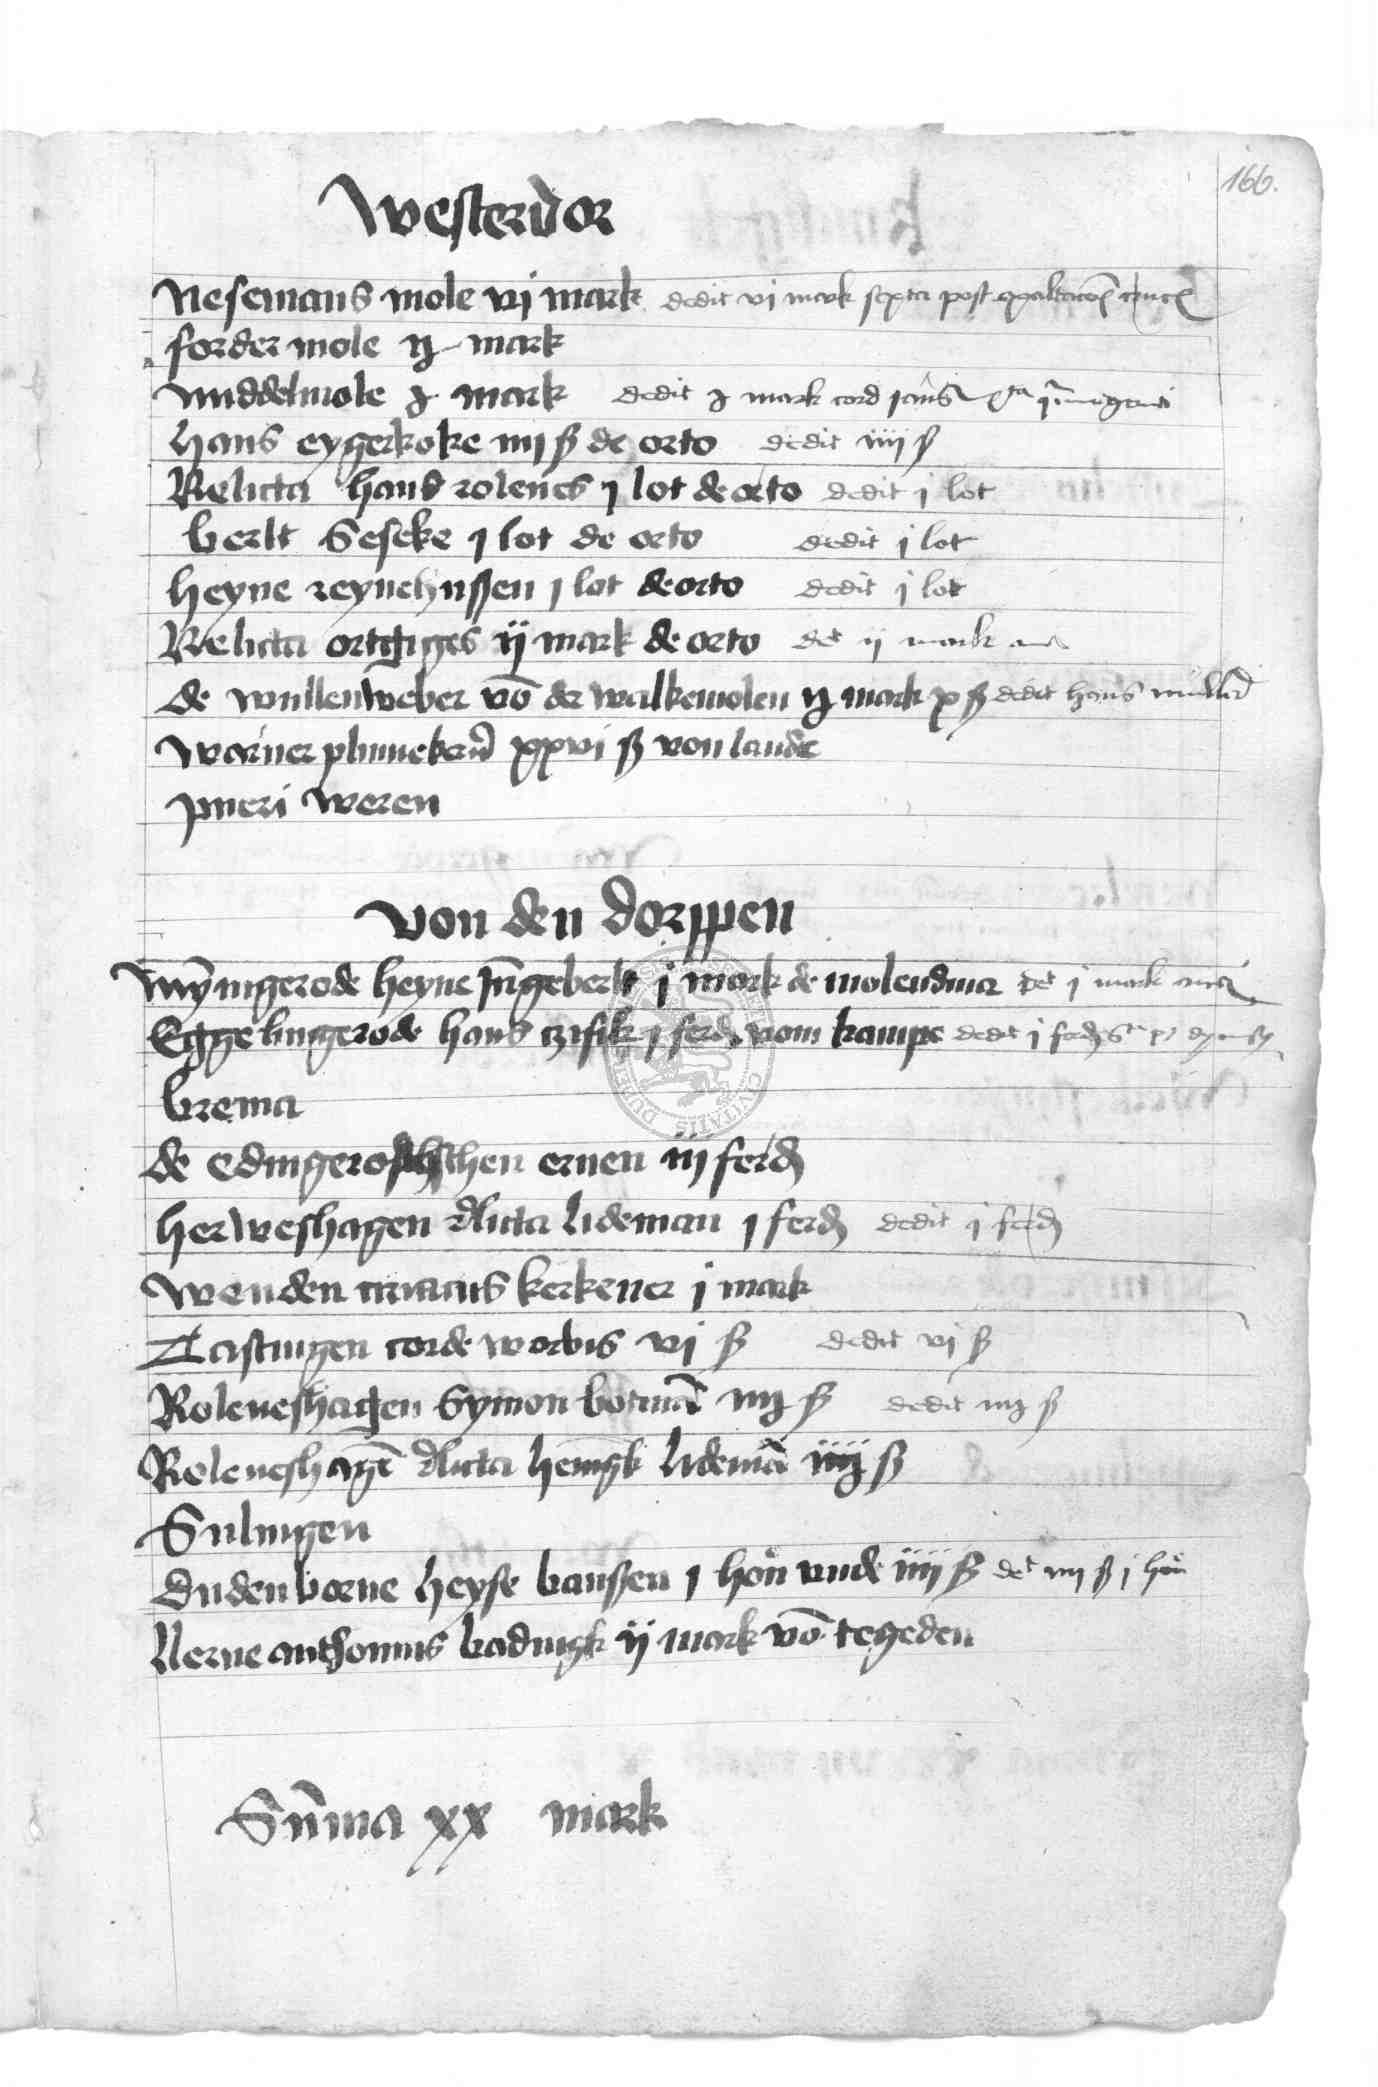 166.
Westerdor
Nesemans mole vj mark dedit vj mark sexta post exaltacoẽ crucẽ
forder mole ij mark
Middelmole j mark dedit j mark cord
hans eygerkoke iiij ß de orto dedit iiij ß
Relicta hans rolenes j lot de orto dedit j lot
berlt Seseke j lot de orto dedit j lot
heyne reynehussen j lot de orto dedit j lot
Relicta ortgiges ij mark de orto det ij mark
de wullenweber võ der walkemolen ij mark x ß dedit hans
Warner xxvj ß von lande
pueri weren
Von den dorppen
Wȳnigerode heyne Jngeberk j mark de molendina det j mark
Eggelingerode hans j ferd vom kampe dedit j ferd
brema
de edingerodeschen erven iij ferd
herweshagen rlicta lideman j ferd dedit j ferd
Wenden kerkener j mark
Tastungen corde worbis vj ß dedit vj ß
Roleueshagen Symon botmā iiij ß dedit iiij ß
Roleueshagē rlicta henigk lidemā iiij ß
Sulingen
Dudenborne heyse bansen j hon vnde iiij ß det iiij ß j hon
Uerne anthonius hadingk ij mark võ tegeden
Sūma xx mark
CIVITATIS